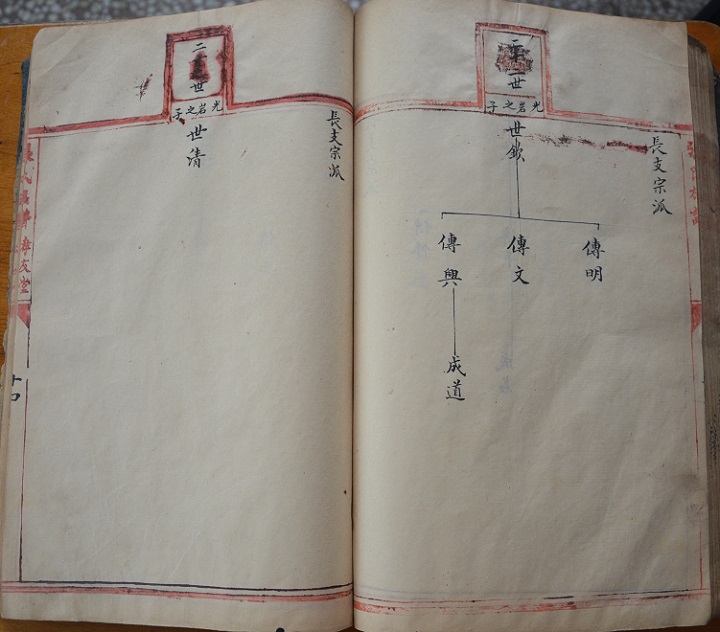 長支宗派
二十一世
光岩之子
世欽
傳明
傳文
傳興
成道
長支宗派
二世
光岩之子
世清
友堂